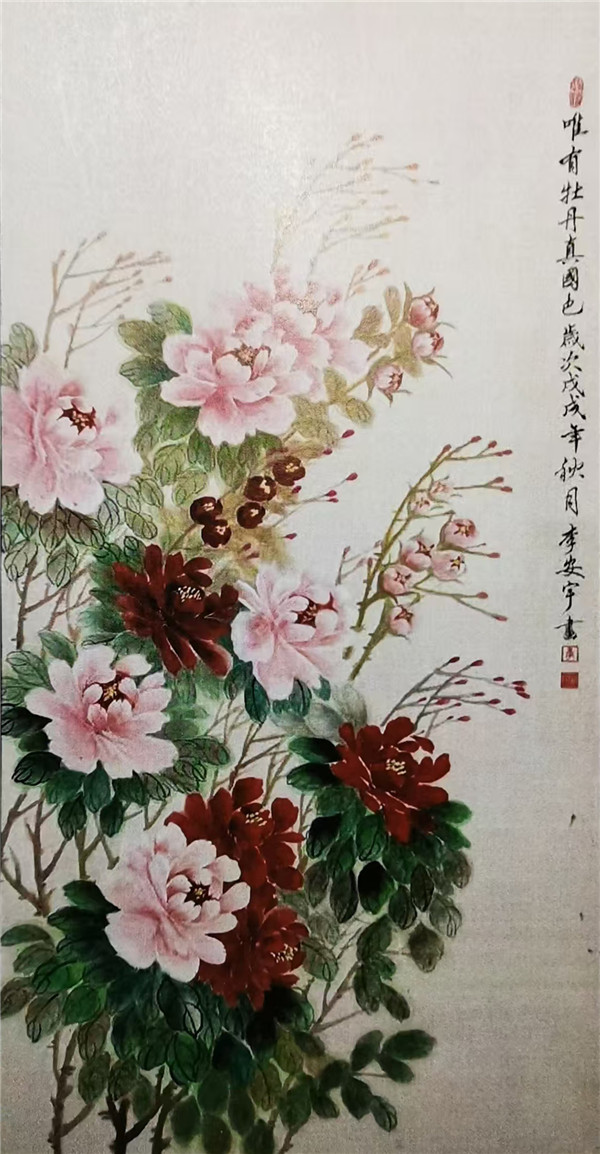 唯有牡丹真國色歲次戊戌年秋月李安宇畫